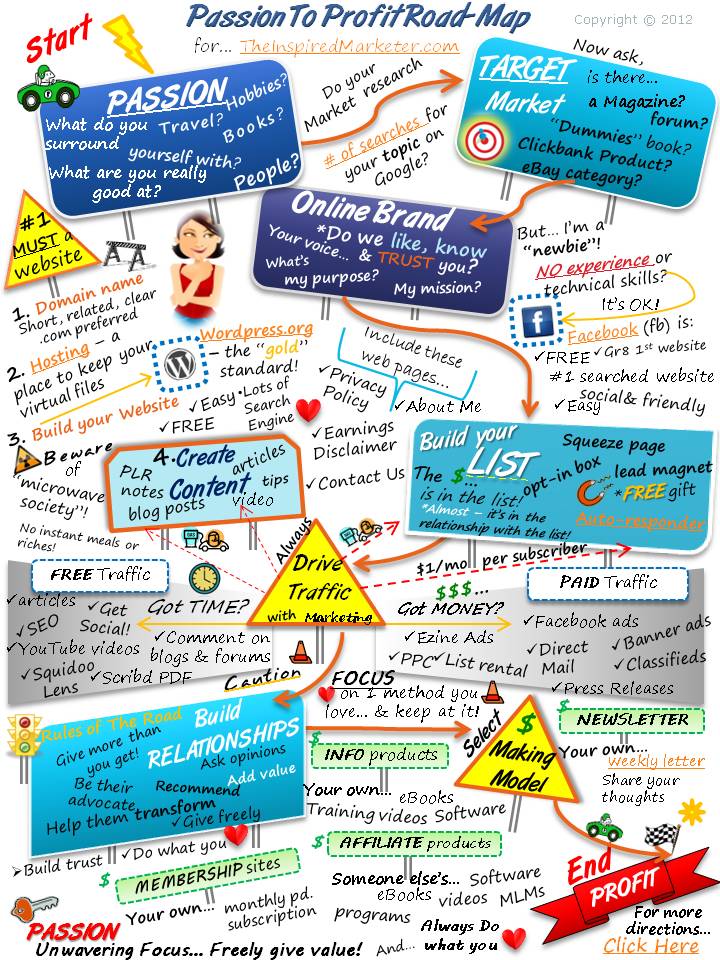 Passion To Profit Road-Map
Copyright © 2012
for... TheInspiredMarketer.com
Start
PASSION
Hobbies?
What do you
surround
Travel?
Books?
yourself with?
What are you really
good at?
People?
Do your
Market research
# of searches for
your topic on
Google?
TARGET
Market
Now ask,
is there...
a Magazine?
forum?
"Dummies" book?
Clickbank Product?
eBay category?
#1
MUST a
website
Online Brand
*Do we like, know
& TRUST you?
Your voice...
What's
my purpose?
My mission?
But... I'm a
"newbie"!
NO experience or
technical skills?
It's OK!
f
Facebook (fb) is:
✓FREE
✓Gr8 1st website
#1 searched website
✓Easy
social & friendly
1. Domain name
Short, related, clear
.com preferred
2. Hosting – a
place to keep your
virtual files
3. Build your Website
W
Wordpress.org
– the "gold"
standard!
✓Easy
•Lots of
Search
Engine
✓FREE
Include these
web pages...
✓Privacy
Policy
✓About Me
✓Earnings
Disclaimer
✓Contact Us
Beware
of
"microwave
society"!
No instant meals or
riches!
4.Create
Content
articles
PLR
notes
tips
blog posts
video
Build your
LIST
The $...
is in the list!
*Almost – it's in the
relationship with the list!
Squeeze page
opt-in box
lead magnet
*FREE gift
Auto-responder
Always
Drive
Traffic
with Marketing
$1/mo per subscriber
FREE Traffic
✓articles
✓SEO
✓Get
Social!
✓YouTube videos
✓Squidoo
Lens
✓Scribd PDF
Got TIME?
✓Comment on
blogs & forums
Caution
$$$...
Got MONEY?
✓Ezine Ads
✓PPC
✓List rental
PAID Traffic
✓Facebook ads
✓Direct
Mail
✓Banner ads
✓Classifieds
✓Press Releases
FOCUS
on 1 method you
love... & keep at it!
Rules of The Road
Build
RELATIONSHIPS
Give more than
you get!
Ask opinions
Be their
advocate
Recommend
Add value
Help them transform
✓Give freely
Build trust
✓Do what you
Select
$
Making
Model
$
INFO products
Your own...
eBooks
Training videos
Software
$
NEWSLETTER
Your own...
weekly letter
Share your
thoughts
$
AFFILIATE products
Someone else's...
eBooks
Software
videos
MLMs
programs
$
MEMBERSHIP sites
Your own...
monthly pd.
subscription
End
PROFIT
For more
directions...
Click Here
PASSION
Unwavering Focus... Freely give value!
And...
Always Do
what you